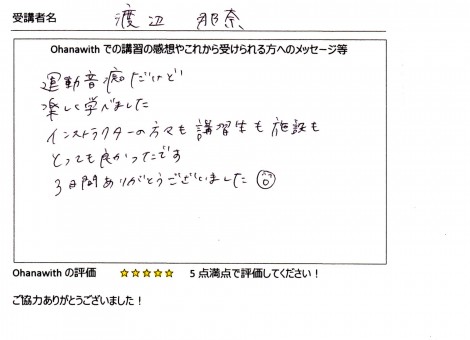 受講者名 渡辺 那奈
Ohanawith での講習の感想やこれから受けられる方へのメッセージ等
運動音痴だけど
楽しく学べました
インストラクターの方々も講習生も施設も
とっても良かったです
3日間ありがとうございました
Ohanawith の評価 ★★★★★ 5 点満点で評価してください！
ご協力ありがとうございました！